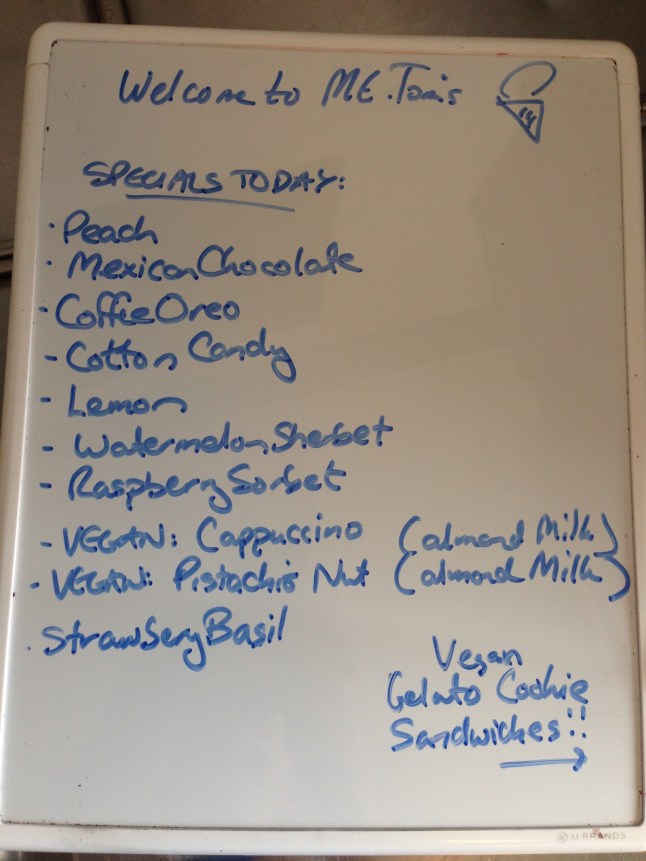 Welcome to M.E. Tom's
SPECIALS TODAY:
· Peach
· Mexican Chocolate
· Coffee Oreo
- Cotton Candy
- Lemon
- Watermelon Sherbet
- Raspberry Sorbet
- VEGAN: Cappuccino (almond Milk)
- VEGAN: Pistachio Nut (almond Milk)
· Strawberry Basil
Vegan
Gelato Cookie
Sandwiches!!
U BRANDS